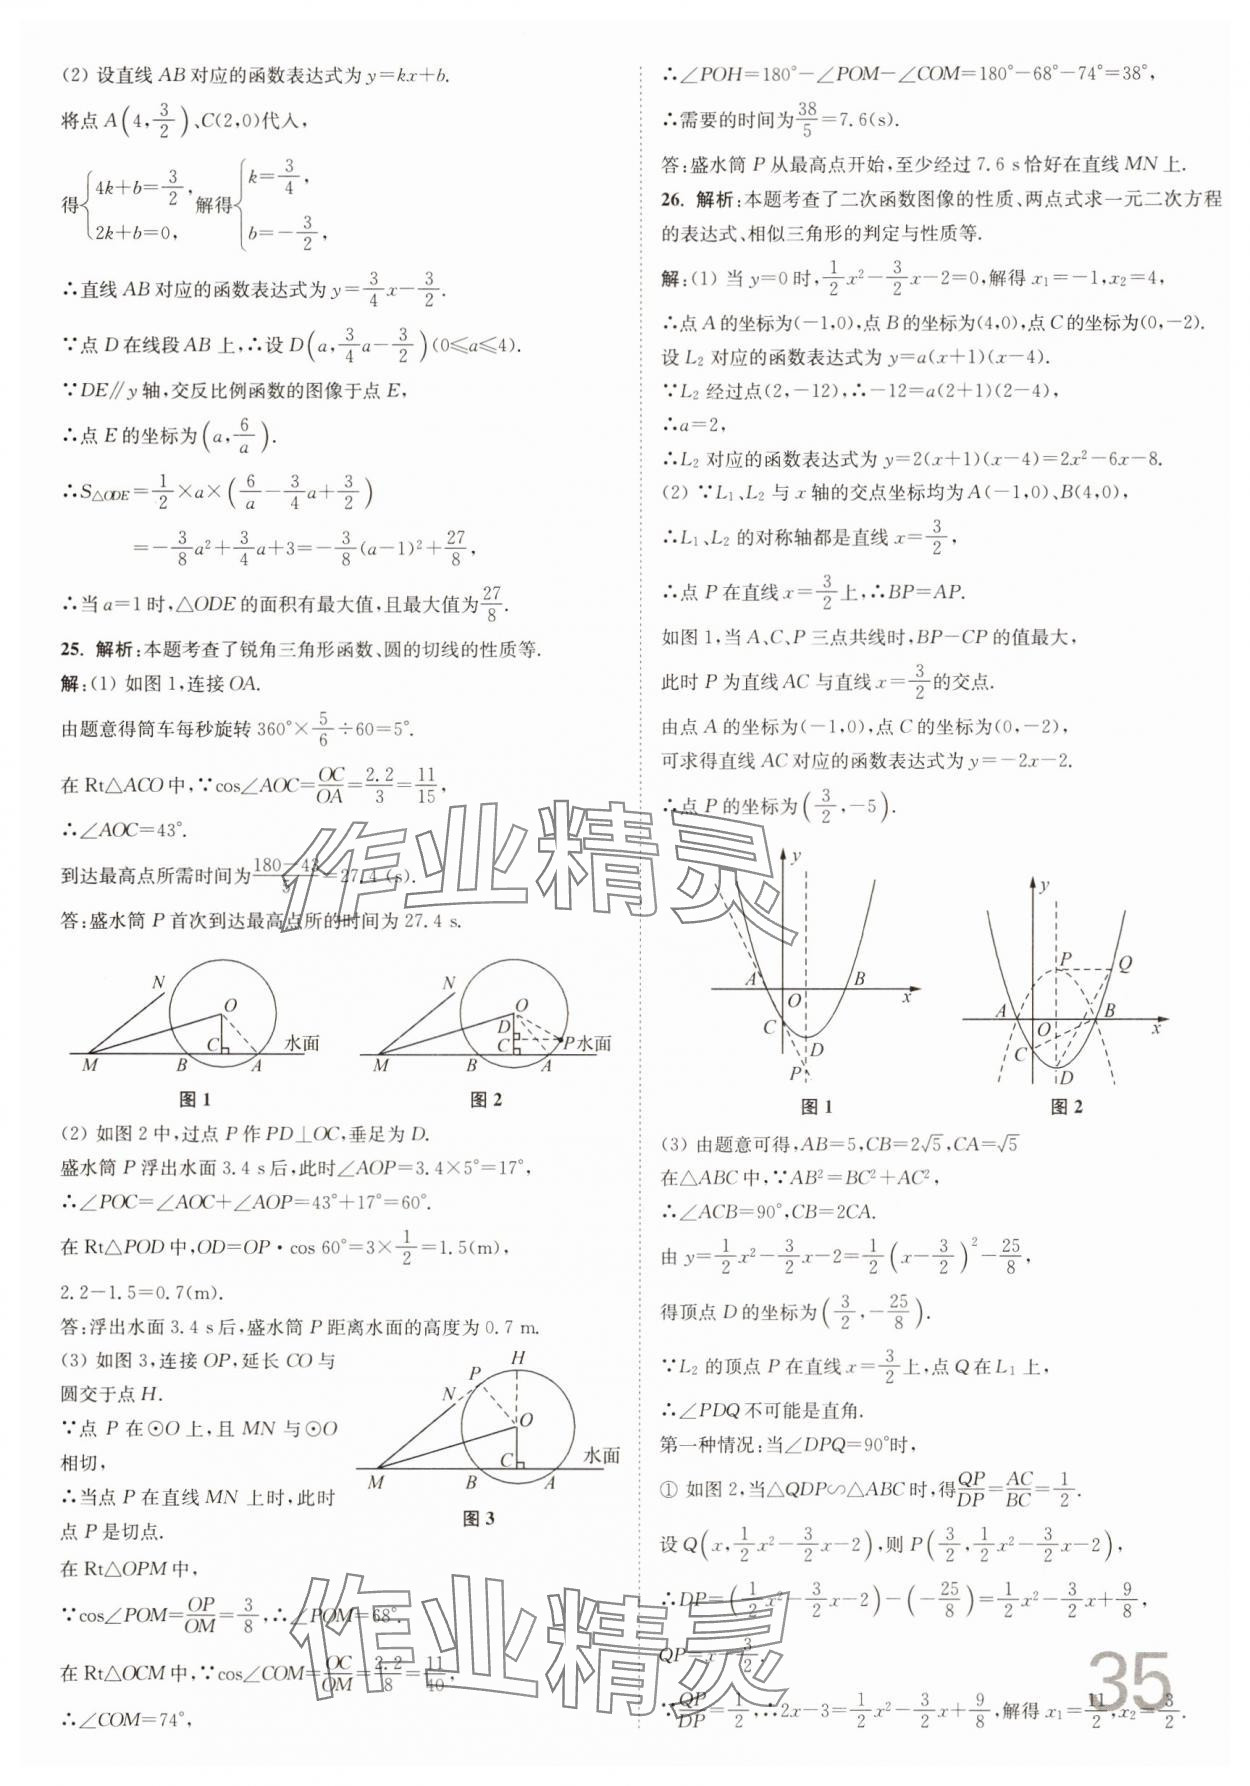 (2) 设直线 AB 对应的函数表达式为 y=kx+b.
将点 A(4, 3/2)、C(2,0)代入,
得{4k+b=3/2, 2k+b=0, 解得{k=3/4, b=-3/2,
∴直线 AB 对应的函数表达式为 y=3/4x-3/2.
∵点 D 在线段 AB 上,∴设 D(a, 3/4a-3/2)(0≤a≤4).
∵DE∥y 轴,交反比例函数的图像于点 E,
∴点 E 的坐标为(a, 6/a).
∴S△ODE=1/2×a×(6/a-3/4a+3/2)
=-3/8a²+3/4a+3=-3/8(a-1)²+27/8,
∴当 a=1 时,△ODE 的面积有最大值,且最大值为27/8.
25. 解析:本题考查了锐角三角形函数、圆的切线的性质等.
解:(1) 如图 1,连接 OA.
由题意得筒车每秒旋转 360°×5/6÷60=5°.
在 Rt△ACO 中,∵cos∠AOC=OC/OA=2.2/3=11/15,
∴∠AOC=43°.
到达最高点所需时间为(180-43)/5=27.4(s).
答:盛水筒 P 首次到达最高点所的时间为 27.4 s.
N O C M B A 水面
图 1
N O D C M B A P 水面
图 2
(2) 如图 2 中,过点 P 作 PD⊥OC,垂足为 D.
盛水筒 P 浮出水面 3.4 s 后,此时∠AOP=3.4×5°=17°,
∴∠POC=∠AOC+∠AOP=43°+17°=60°.
在 Rt△POD 中,OD=OP·cos 60°=3×1/2=1.5(m),
2.2-1.5=0.7(m).
答:浮出水面 3.4 s 后,盛水筒 P 距离水面的高度为 0.7 m.
(3) 如图 3,连接 OP,延长 CO 与
圆交于点 H.
∵点 P 在⊙O 上,且 MN 与⊙O
相切,
∴当点 P 在直线 MN 上时,此时
点 P 是切点.
H P N O C M B A 水面
图 3
在 Rt△OPM 中,
∵cos∠POM=OP/OM=3/8,∴∠POM=68°.
在 Rt△OCM 中,∵cos∠COM=OC/OM=2.2/8=11/40,
∴∠COM=74°,
∴∠POH=180°-∠POM-∠COM=180°-68°-74°=38°,
∴需要的时间为38/5=7.6(s).
答:盛水筒 P 从最高点开始,至少经过 7.6 s 恰好在直线 MN 上.
26. 解析:本题考查了二次函数图像的性质、两点式求一元二次方程
的表达式、相似三角形的判定与性质等.
解:(1) 当 y=0 时,1/2x²-3/2x-2=0,解得 x₁=-1,x₂=4,
∴点 A 的坐标为(-1,0),点 B 的坐标为(4,0),点 C 的坐标为(0,-2).
设 L₂ 对应的函数表达式为 y=a(x+1)(x-4).
∵L₂ 经过点(2,-12),∴-12=a(2+1)(2-4),
∴a=2,
∴L₂ 对应的函数表达式为 y=2(x+1)(x-4)=2x²-6x-8.
(2) ∵L₁、L₂ 与 x 轴的交点坐标均为 A(-1,0)、B(4,0),
∴L₁、L₂ 的对称轴都是直线 x=3/2,
∴点 P 在直线 x=3/2上,∴BP=AP.
如图 1,当 A、C、P 三点共线时,BP-CP 的值最大,
此时 P 为直线 AC 与直线 x=3/2的交点.
由点 A 的坐标为(-1,0),点 C 的坐标为(0,-2),
可求得直线 AC 对应的函数表达式为 y=-2x-2.
∴点 P 的坐标为(3/2,-5).
y A O B x C D P
图 1
y P Q A O B x C D
图 2
(3) 由题意可得,AB=5,CB=2√5,CA=√5
在△ABC 中,∵AB²=BC²+AC²,
∴∠ACB=90°,CB=2CA.
由 y=1/2x²-3/2x-2=1/2(x-3/2)²-25/8,
得顶点 D 的坐标为(3/2,-25/8).
∵L₂ 的顶点 P 在直线 x=3/2上,点 Q 在 L₁ 上,
∴∠PDQ 不可能是直角.
第一种情况:当∠DPQ=90°时,
① 如图 2,当△QDP∽△ABC 时,得QP/DP=AC/BC=1/2.
设 Q(x, 1/2x²-3/2x-2),则 P(3/2, 1/2x²-3/2x-2),
∴DP=(1/2x²-3/2x-2)-(-25/8)=1/2x²-3/2x+9/8,
QP=x-3/2.
∵QP/DP=1/2,∴2x-3=1/2x²-3/2x+9/8,解得 x₁=11/2,x₂=3/2.
35
作业精灵
作业精灵